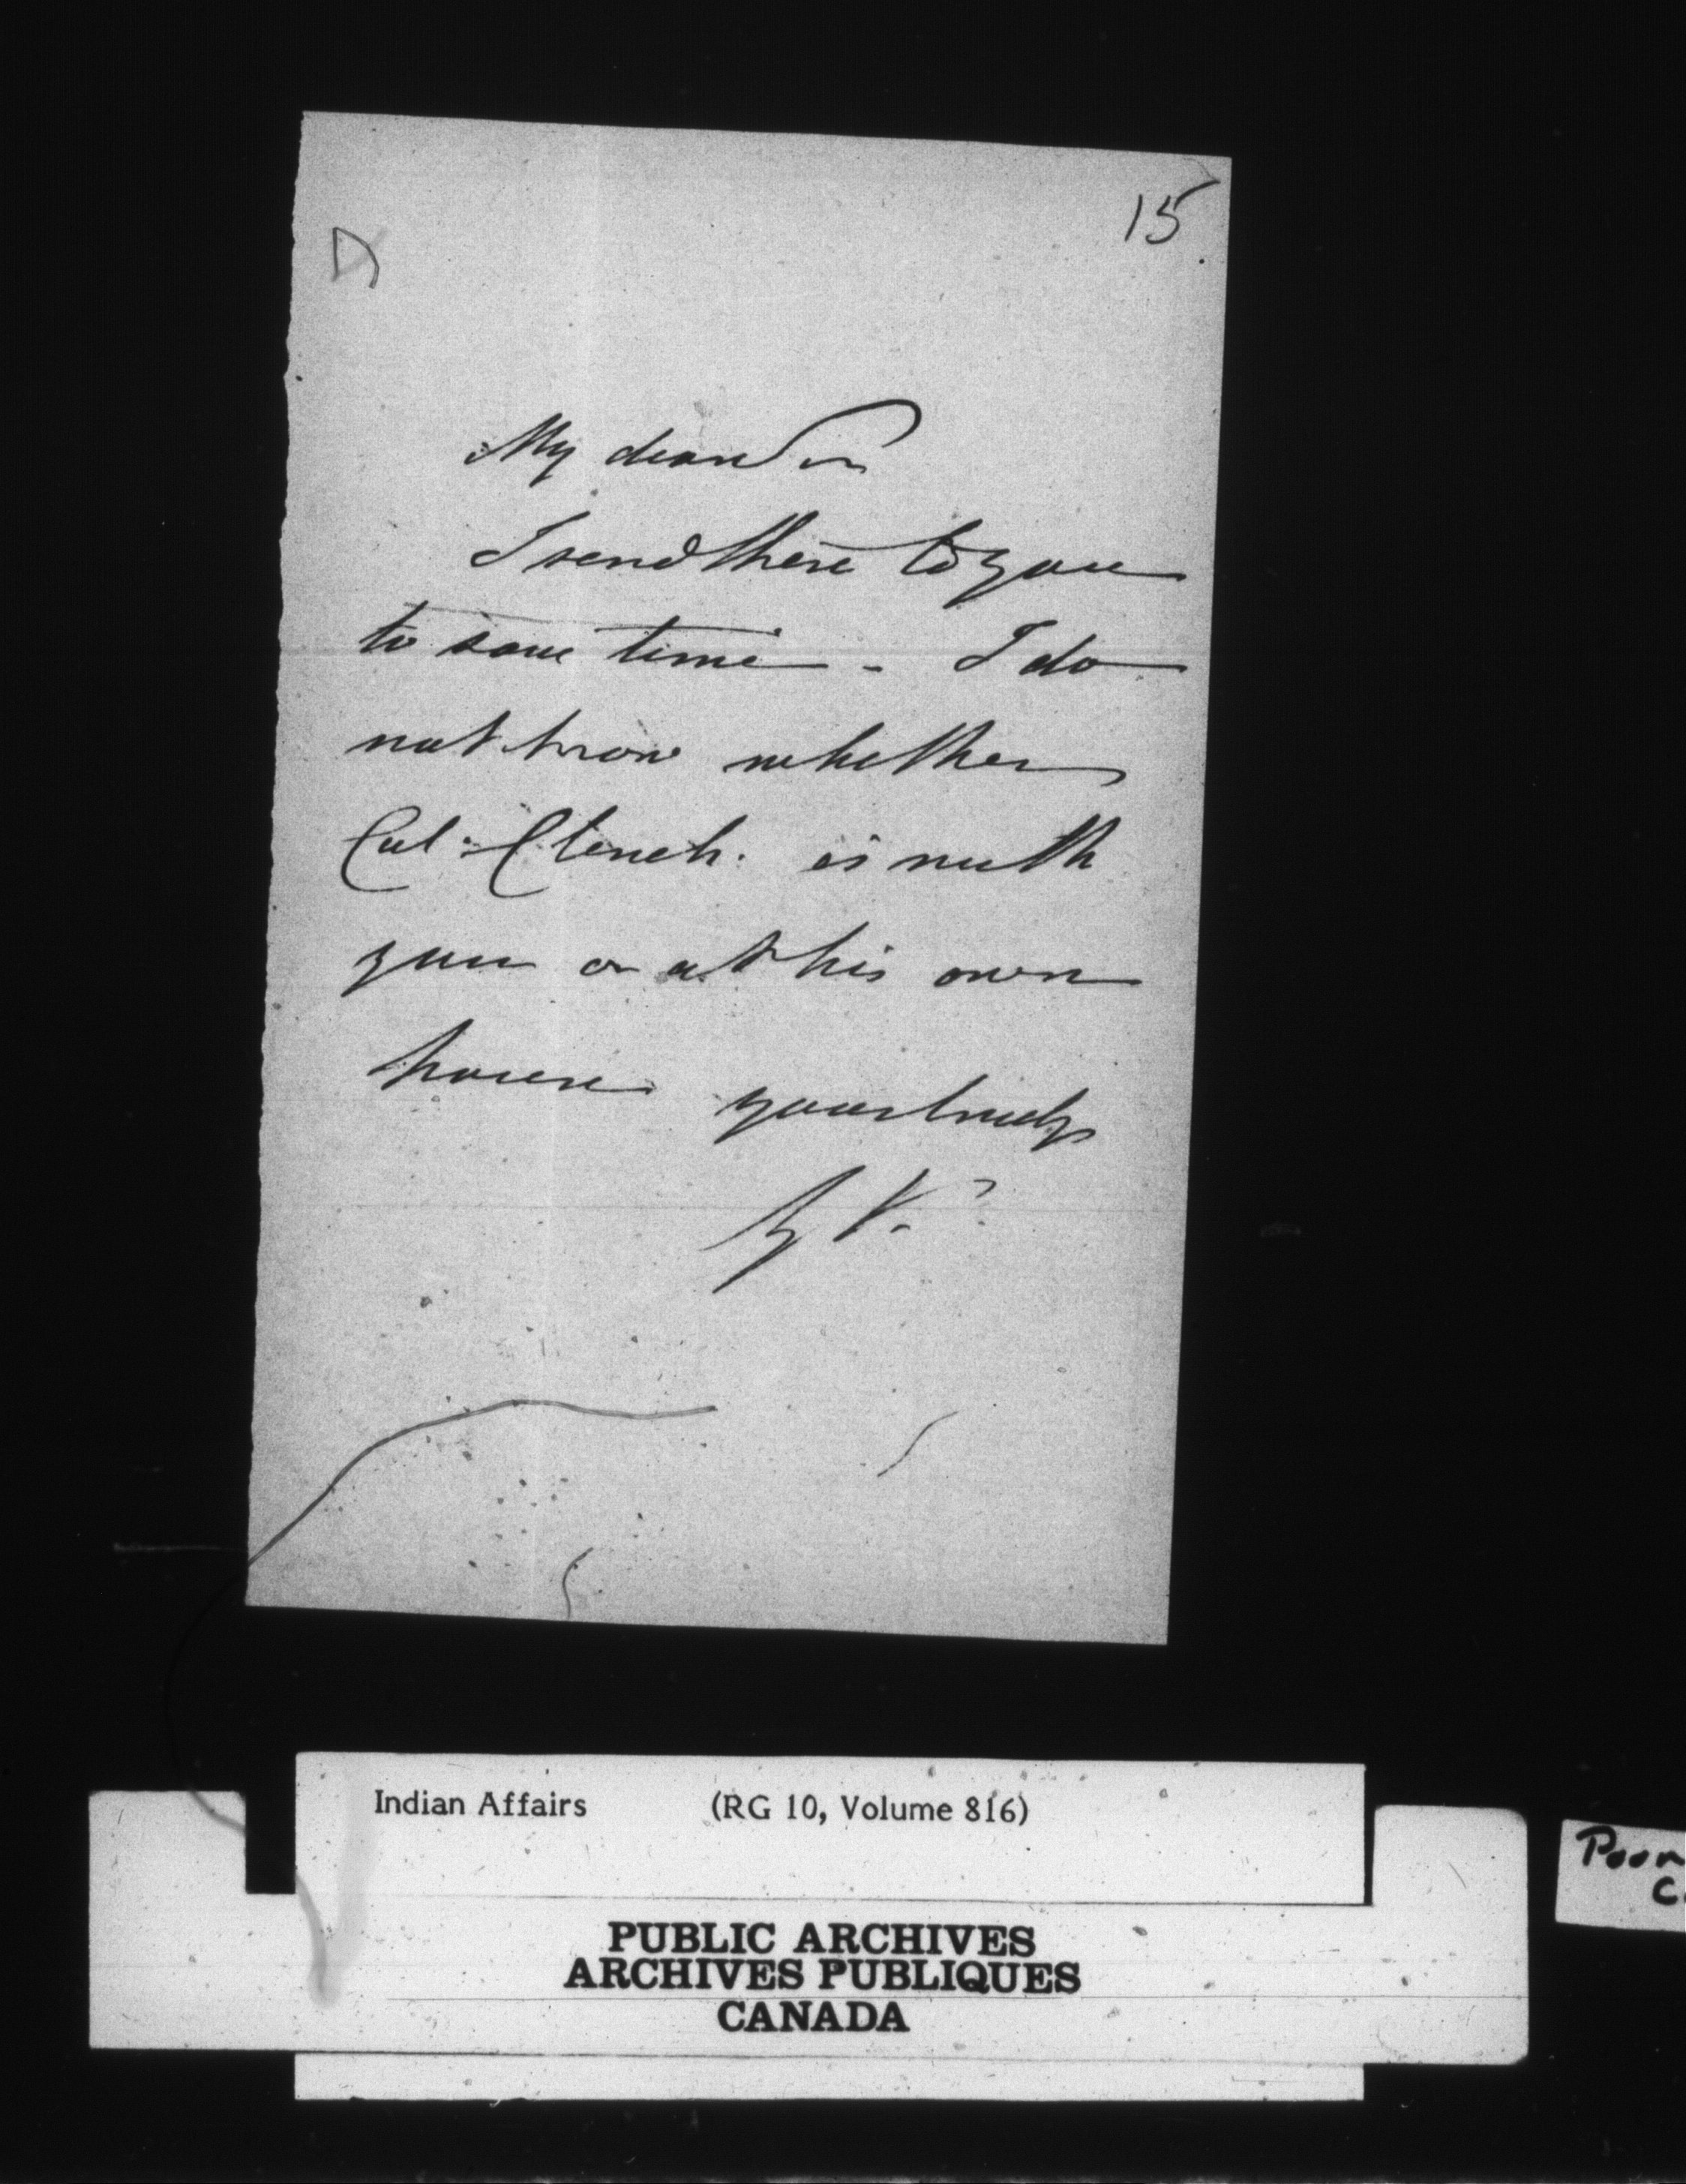 15
My dear Sir
I send these to you
to save time - I do
not know whether
Col: Clench. is with
you or at his own
house yours truly
V.
Indian Affairs (RG 10, Volume 816)
PUBLIC ARCHIVES
ARCHIVES PUBLIQUES
CANADA
Poor
C